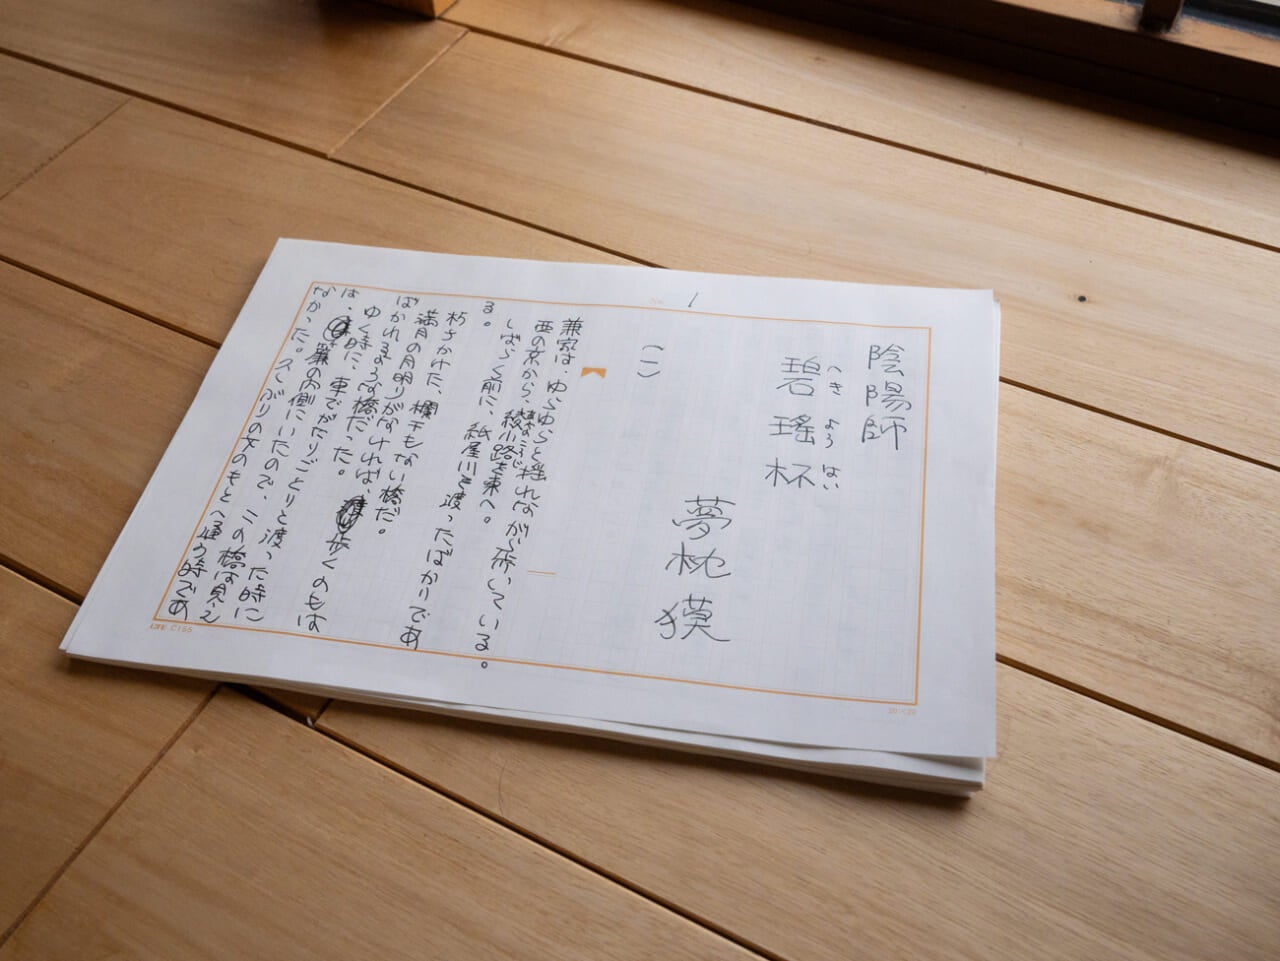 No. 1
陰陽師
碧瑤杯
へき よう はい
夢枕獏
(一)
兼家は、ゆらゆらと揺れながら歩いている。
西の京から、綾小路を東へ。
しばらく前に、紙屋川を渡ったばかりであ
る。
朽ちかけた、欄干もない橋だ。
満月の月明りがなければ、歩くのもは
ばかれるような橋だった。
ゆく時に、車でがたりごとりと渡った時に
は、簾の内側にいたので、この橋は見え
なかった。久しがりの女のもとへ通う時であ
LIFE C155
20×20